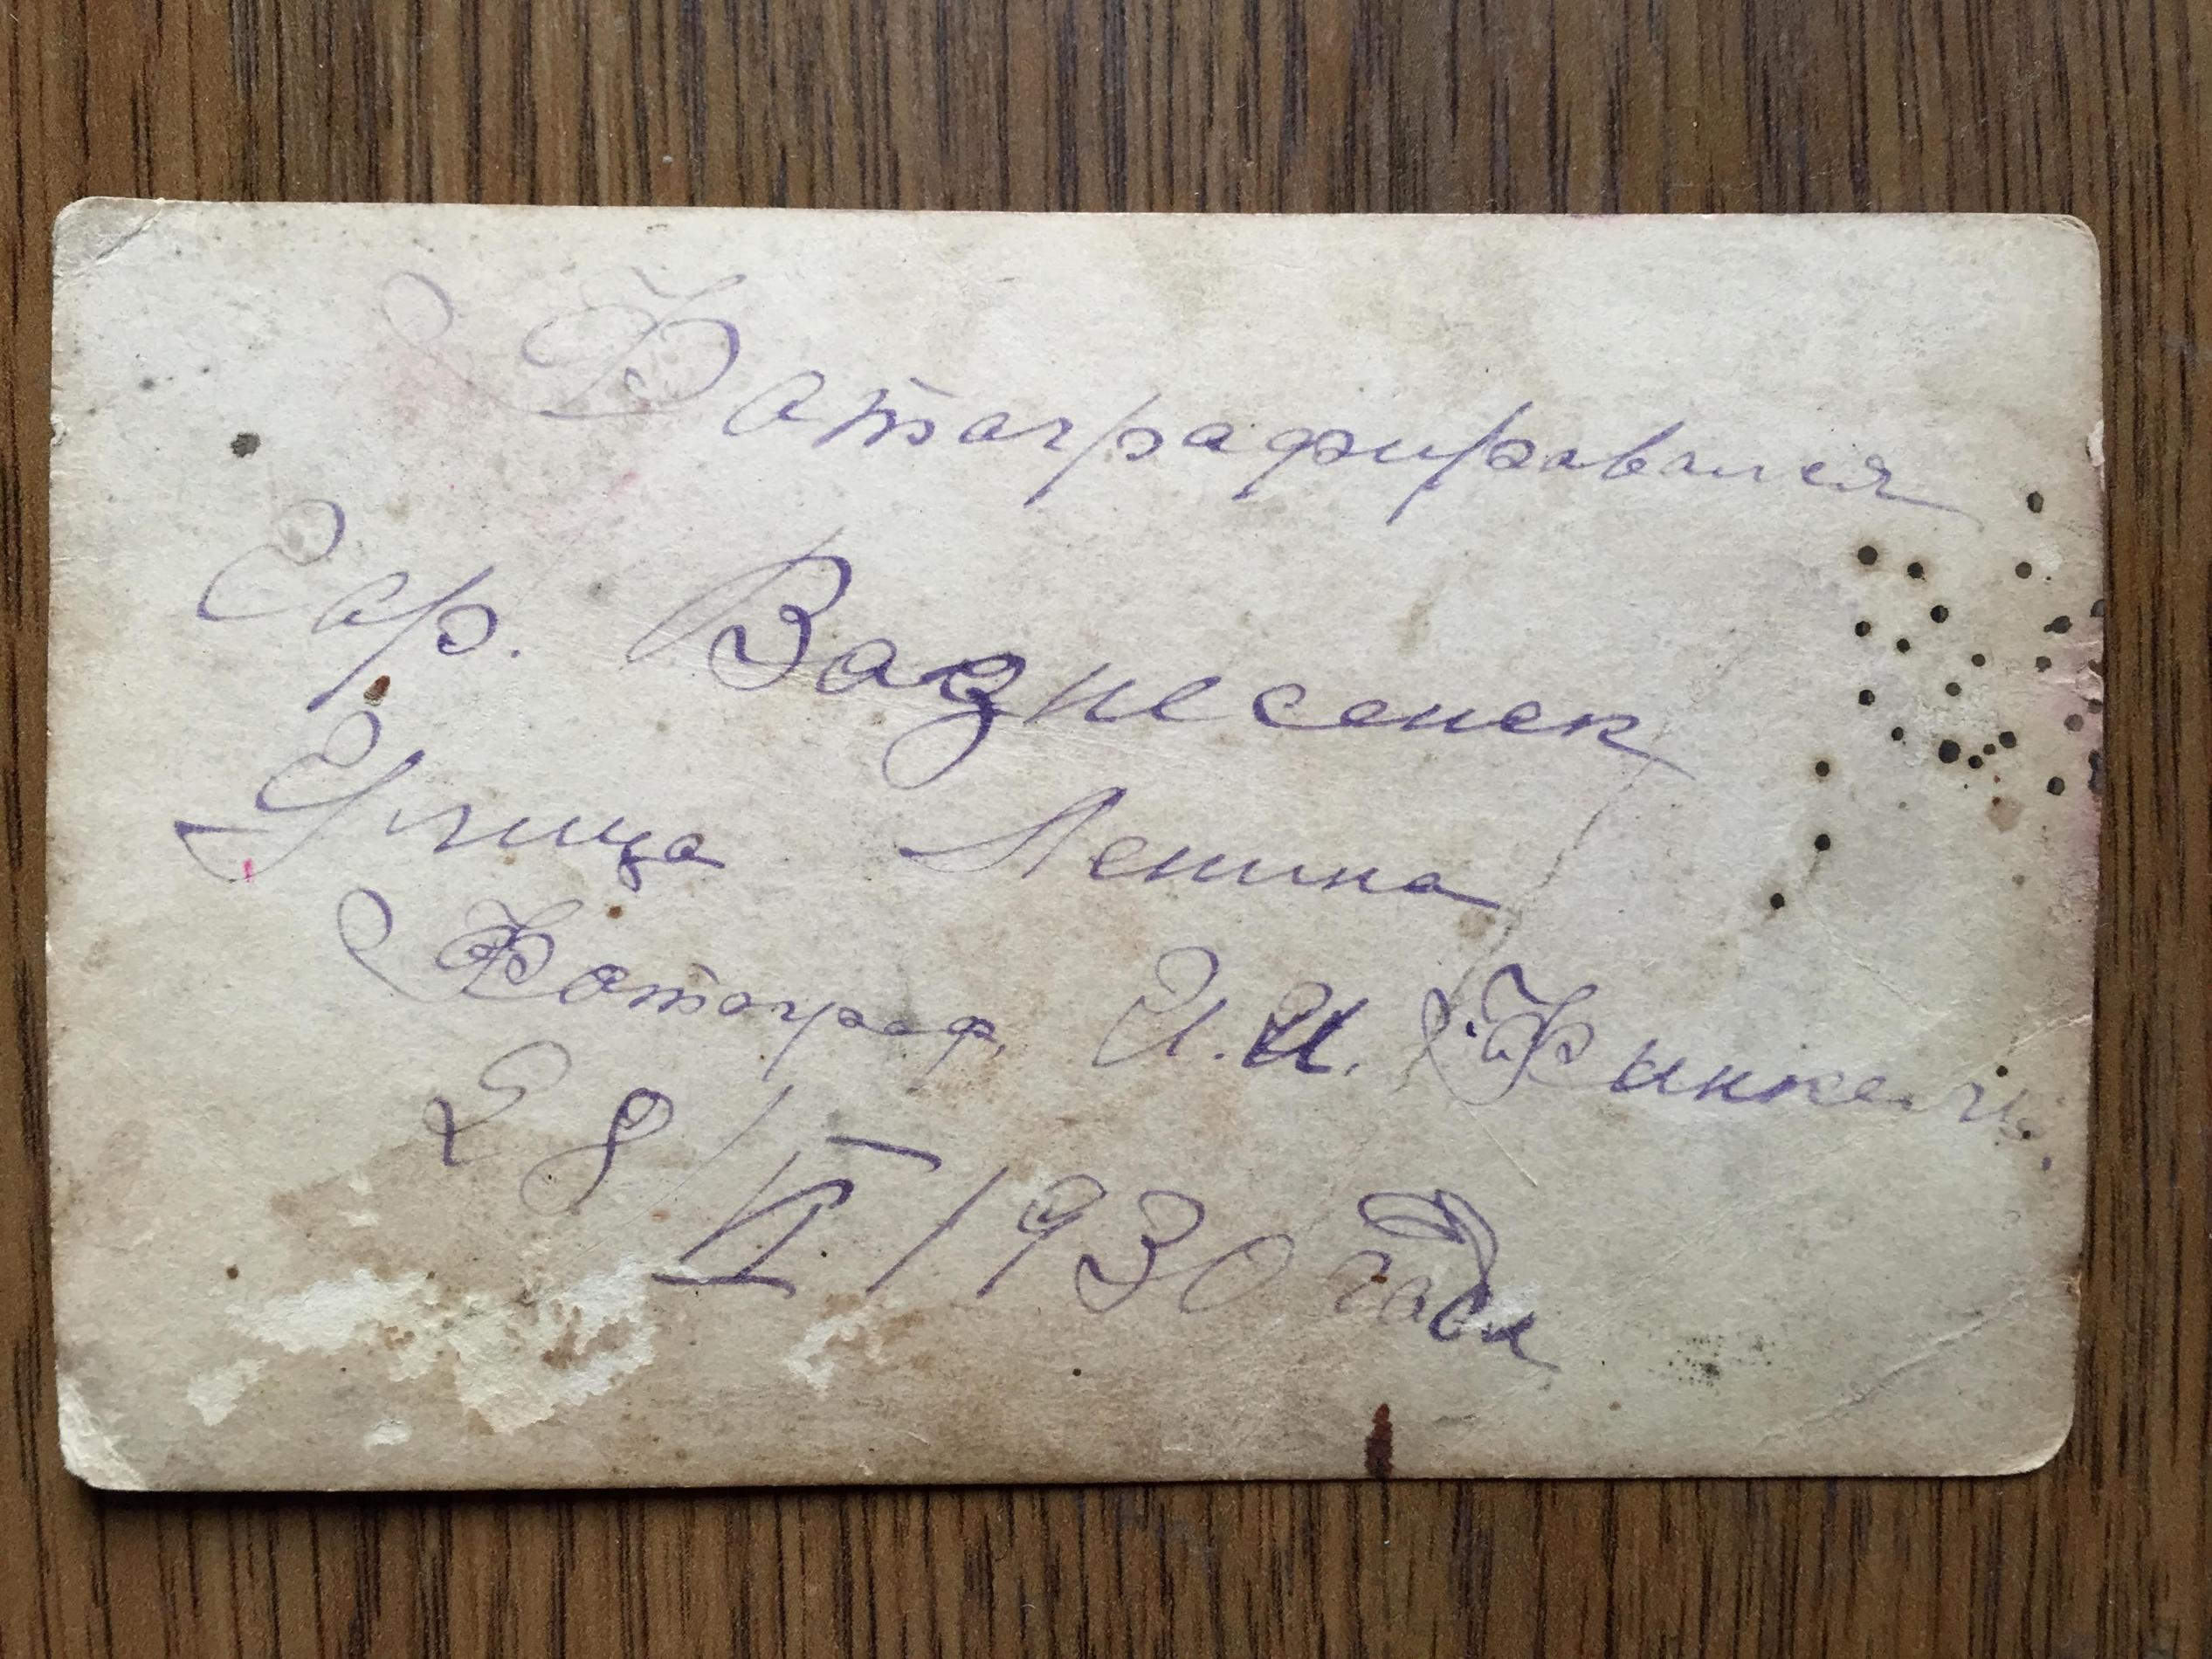 Фотографировался
Гор. Вазнесенск
Улица Ленина
Фотограф. И. И. Финкель
28/V/1930 года